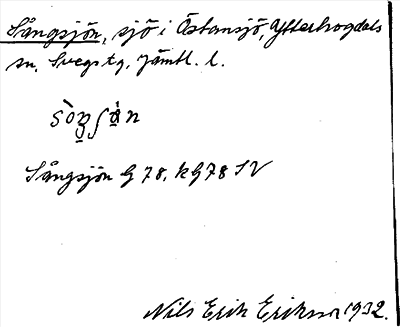 Sångsjön, sjö i Östansjö, Ytterhogdals
sn. Svegs tg. Jämtl. l.
Sångsjön G 78, kG 78 SV
Nils Erik Eriksson 1932.